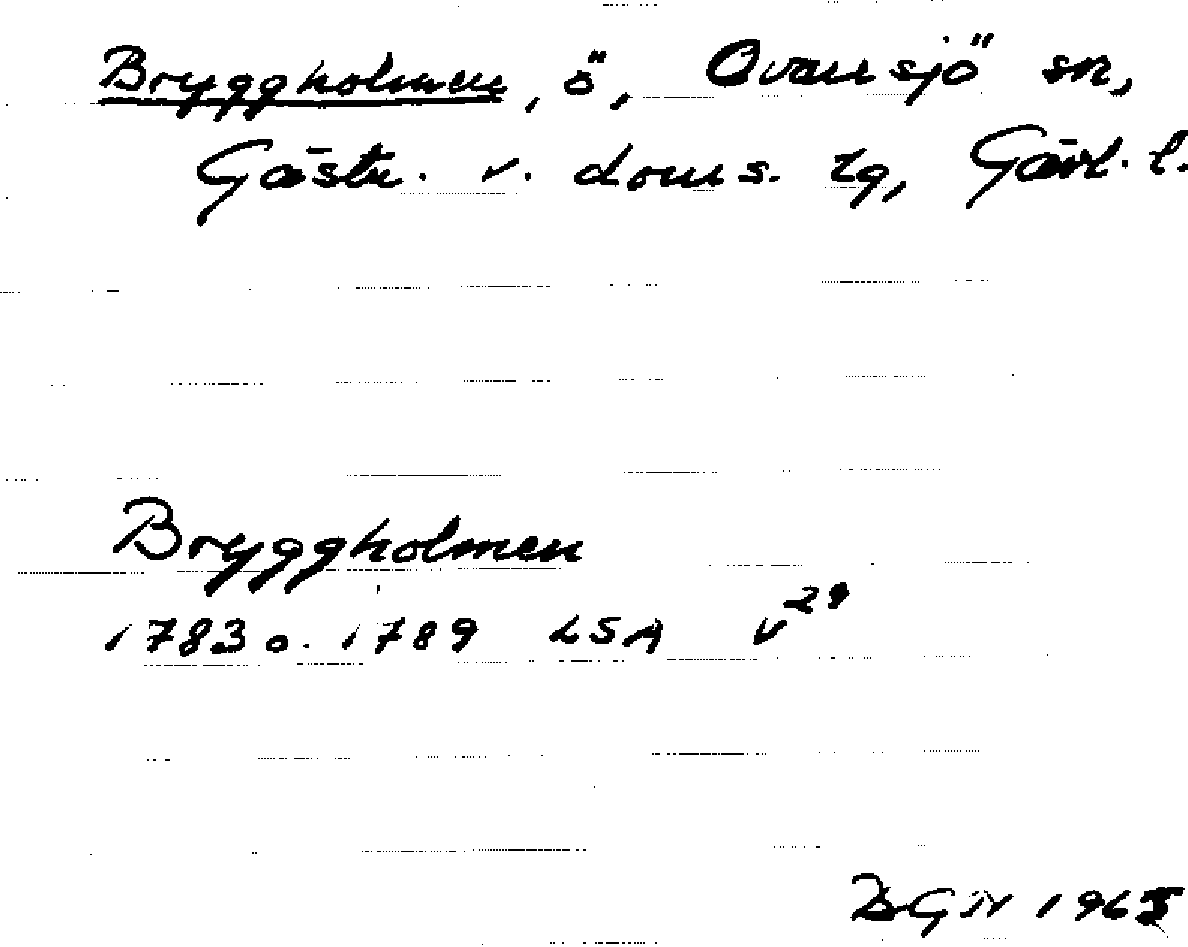 Bryggholmen, ö, Ovansjö sn,
Gästr. v. doms. tg, Gävl. l.
Bryggholmen
1783 o. 1789 LSA V29
1965